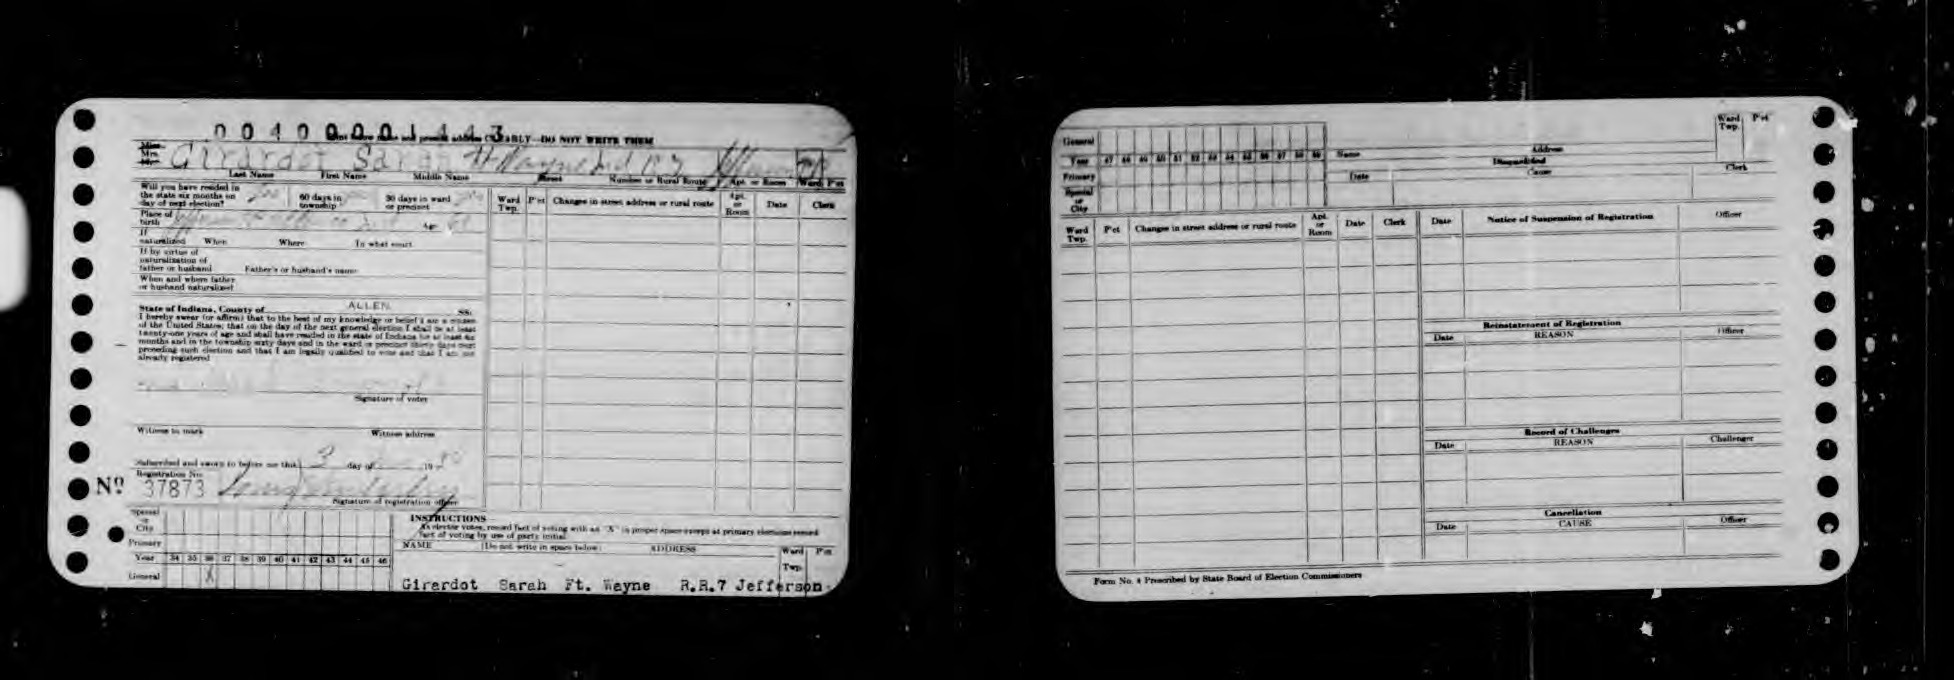 00400001443
CLEARLY—DO NOT WRITE THEM
Miss
Mrs.
Mr.
Girardot Sarah Ft Wayne Ind R 7
Last Name First Name Middle Name Street Number or Rural Route Apt. or Room Ward P'ct
Will you have resided in
the state six months on
day of next election? 60 days in township 30 days in ward or precinct
Place of birth Age
If naturalized When Where In what court
If by virtue of
naturalization of
father or husband Father's or husband's name
When and where father
or husband naturalized
State of Indiana, County of ALLEN SS:
I hereby swear (or affirm) that to the best of my knowledge or belief I am a citizen
of the United States; that on the day of the next general election I shall be at least
twenty-one years of age and shall have resided in the state of Indiana for at least six
months and in the township sixty days and in the ward or precinct thirty days next
preceding such election and that I am legally qualified to vote and that I am not
already registered
Signature of voter
Witness to mark Witness address
Subscribed and sworn to before me this 3 day of 19
Registration No.
Nº 37873
Signature of registration officer
Ward Twp. P'ct Changes in street address or rural route Apt. or Room Date Clerk
Special or City
Primary
Year 34 35 36 37 38 39 40 41 42 43 44 45 46
General X
INSTRUCTIONS
As elector votes, record fact of voting with an "X" in proper space except at primary elections record
fact of voting by use of party initial.
NAME (Do not write in space below) ADDRESS Ward Twp. P'ct
Girardot Sarah Ft. Wayne R.R.7 Jefferson
General
Year 47 48 49 50 51 52 53 54 55 56 57 58 59
Primary
Special or City
Name Address
Disqualified
Date Cause Clerk
Ward Twp. P'ct
Ward Twp. P'ct Changes in street address or rural route Apt. or Room Date Clerk
Date Notice of Suspension of Registration Officer
Reinstatement of Registration
Date REASON Officer
Record of Challenges
Date REASON Challenger
Cancellation
Date CAUSE Officer
Form No. 4 Prescribed by State Board of Election Commissioners